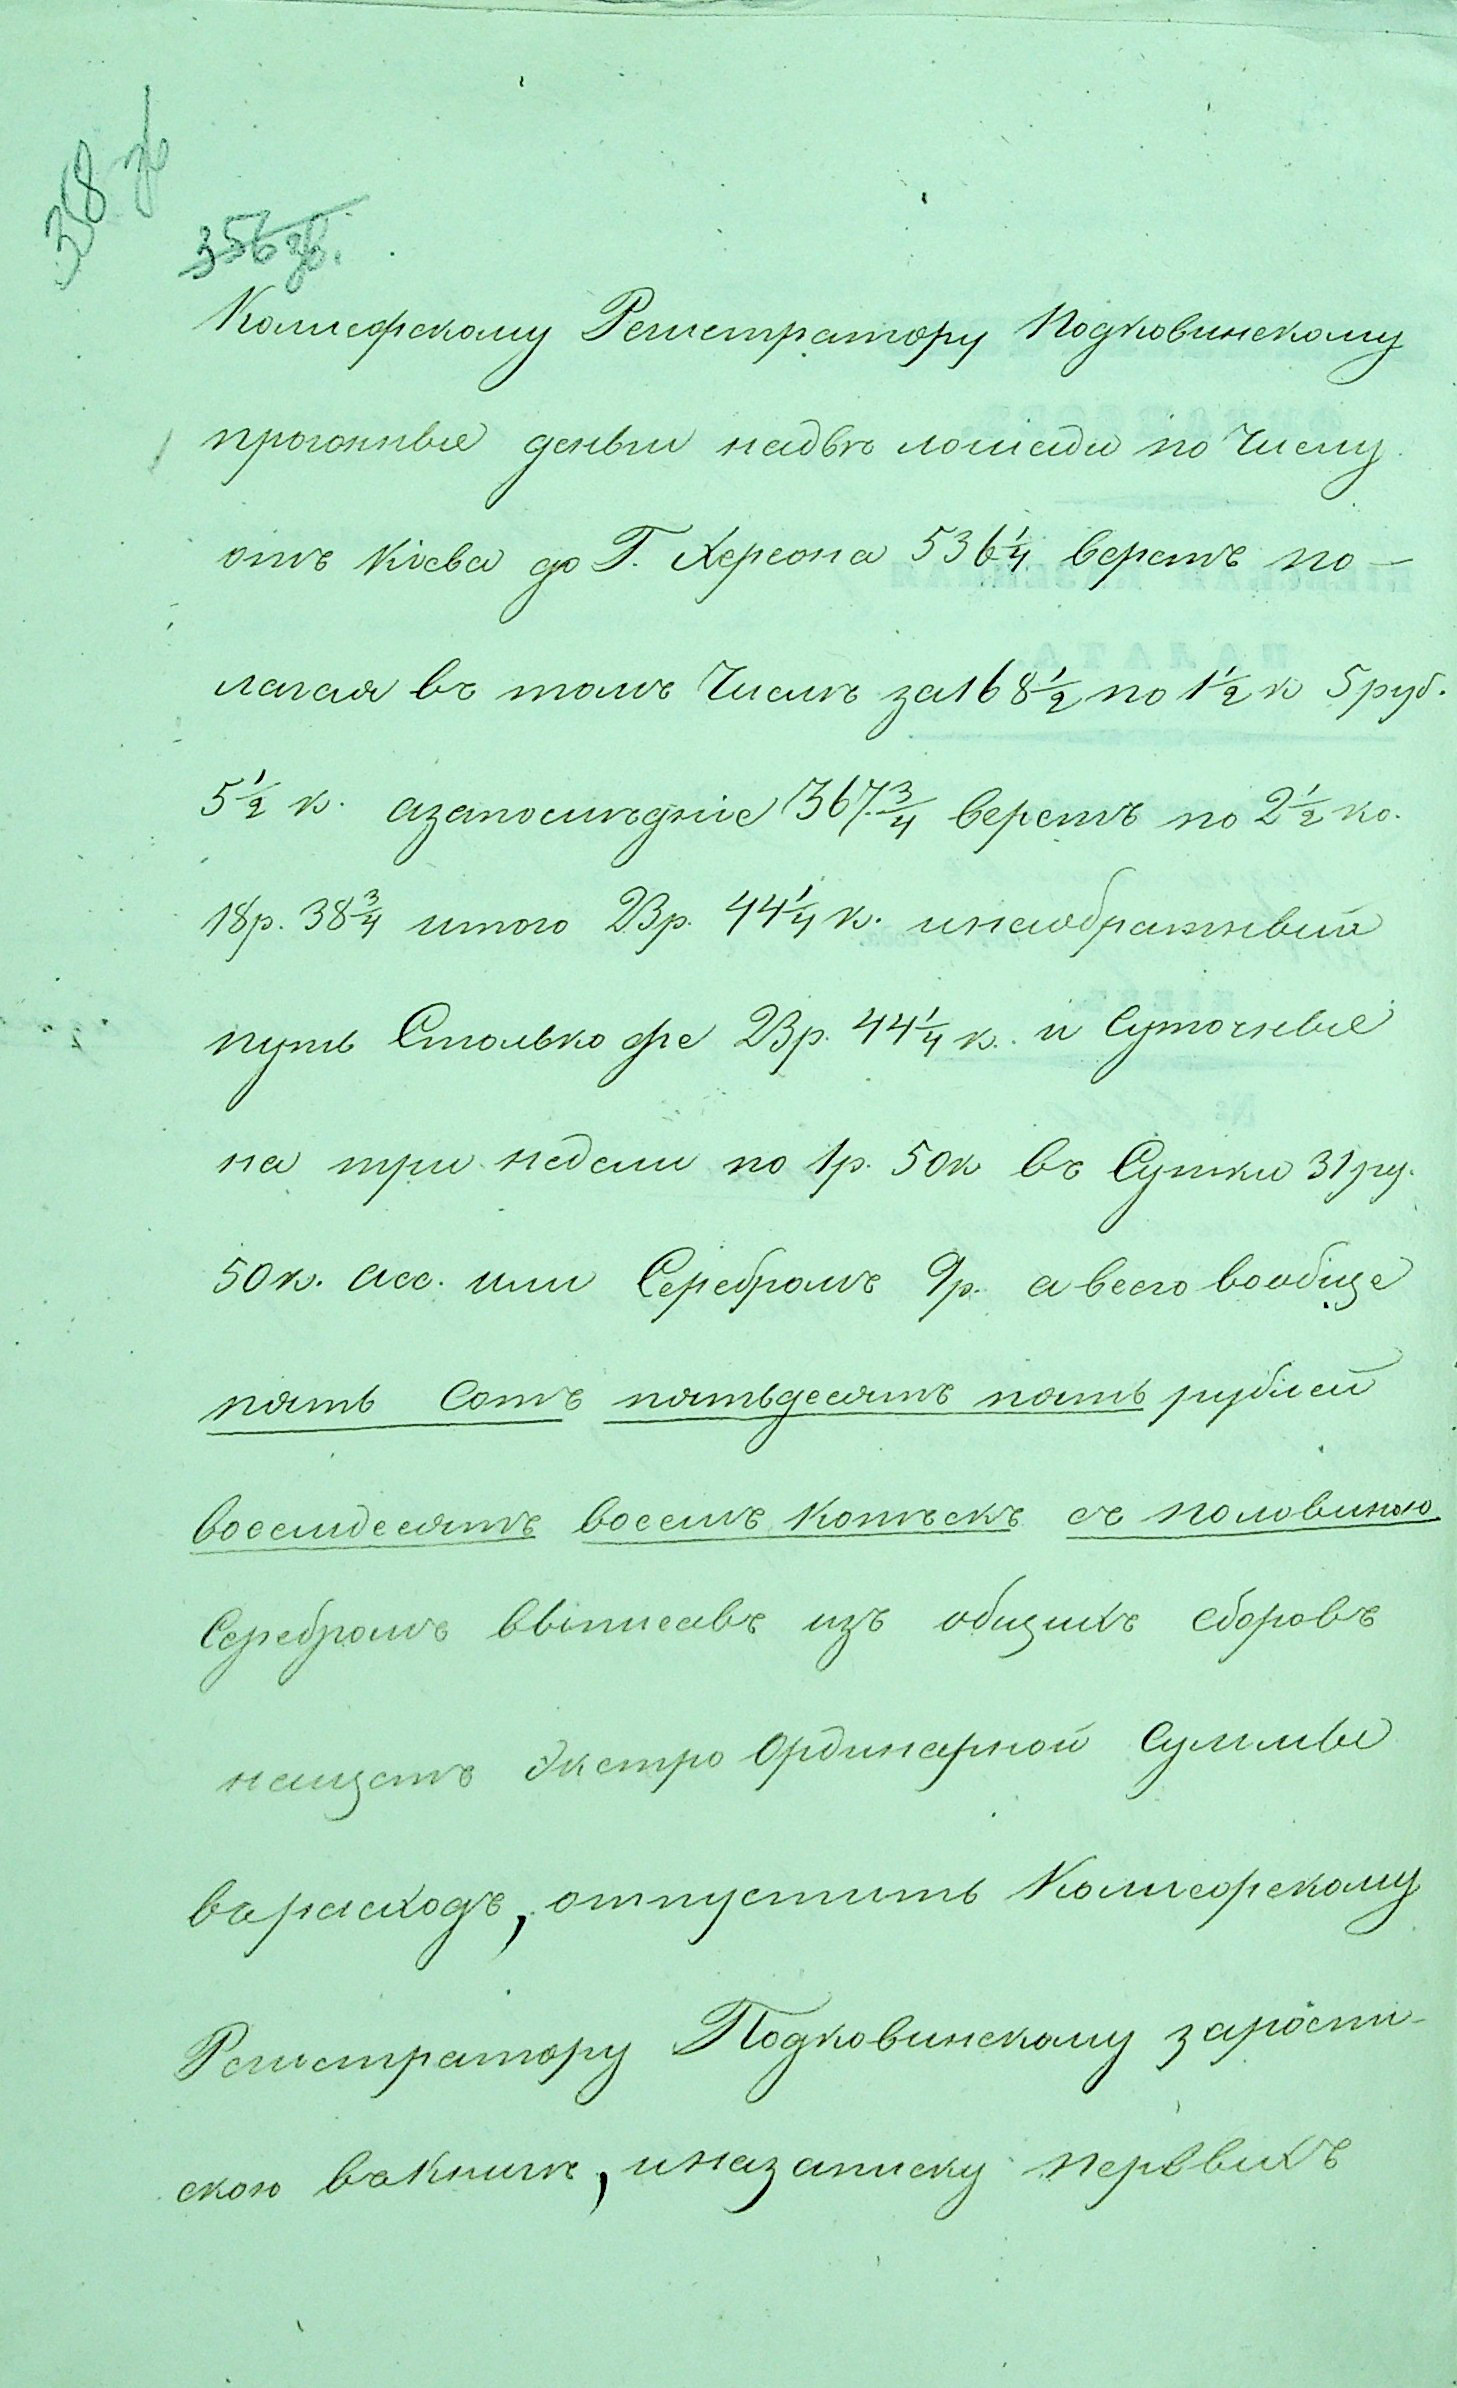 368 об
356 об.
Колежскому Регистратору Подковинскому
прогонные деньги надвѣ лошади по числу
отъ Кіева до Г. Херсона 536 1/4 верстъ по-
лагая въ томъ числѣ за 168 1/2 по 1 1/2 к 5 руб.
5 1/2 к. азапослѣдніе 367. 3/4 верстъ по 2 1/2 ко.
18 р. 38 3/4 итого 23 р. 44 1/4 к. инаобратный
путь Столько же 23 р. 44 1/4 к. и Суточные
на три недели по 1 р. 50 к въ Сутки 31 ру.
50 к. асс. или Серебромъ 9 р. а всего вообще
пять Сотъ пятьдесятъ пять рублей
восемдесятъ восемь копѣекъ съ половиною
Серебромъ выписавъ изъ общихъ сборовъ
нащетъ Экстро Ординарной Суммы
върасходъ, отпустить Колежскому
Регистратору Подковинскому зарости-
скою въ книге, иназаписку первыхъ